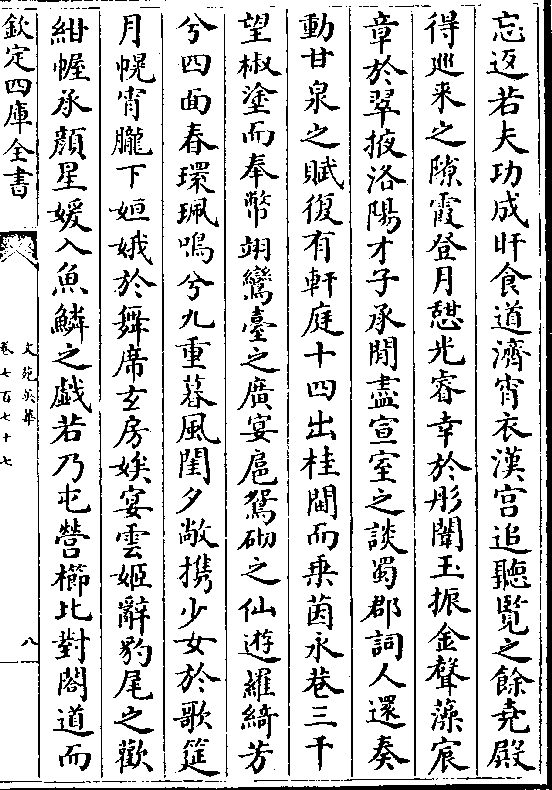 忘返若夫功成旰食道濟宵衣漢宫追聽覽之餘堯殿
得廵来之隙霞登月憇光睿幸於彤闈玉振金聲藻宸
章於翠掖洛陽才子承閒盡宣室之談蜀郡詞人還奏
動甘泉之賦復有軒庭十四出桂閫而乗茵永巷三千
望椒塗而奉幣翊鸞臺之廣宴扈鴛砌之仙遊羅綺芳
兮四面春環珮鳴兮九重暮風闺夕敞擕少女於歌筵
月幌宵朧下姮娥於舞席玄房娭宴雲姬辭豹尾之歡
紺幄承顔星媛入魚鱗之戯若乃屯營櫛比對閣道而
欽定四庫全書
文苑英華
卷七百七十七
八